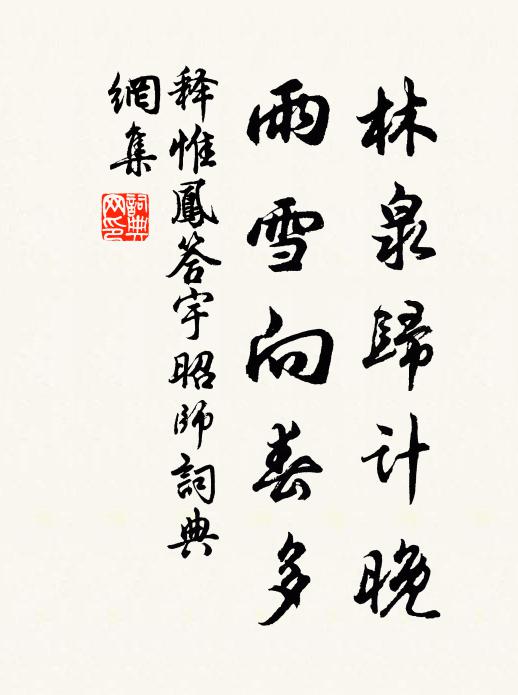 林泉歸計晚
雨雪向春多
释惟鳳答宇昭師詞典
網集
詞典
网印